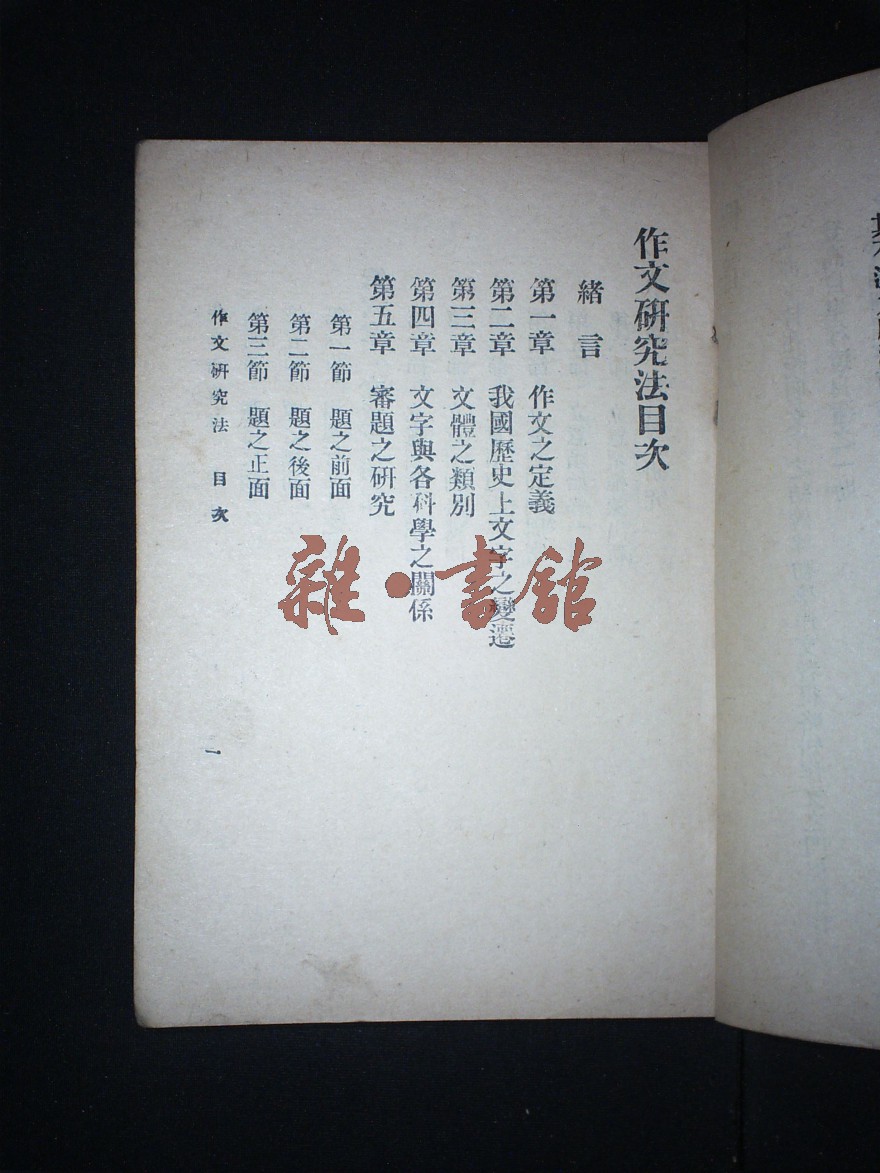 作文硏究法目次
緒言
第一章 作文之定義
第二章 我國歷史上文字之變遷
第三章 文體之類別
第四章 文字與各科學之關係
第五章 審題之硏究
第一節 題之前面
第二節 題之後面
第三節 題之正面
作文硏究法 目次
一
雜·書館